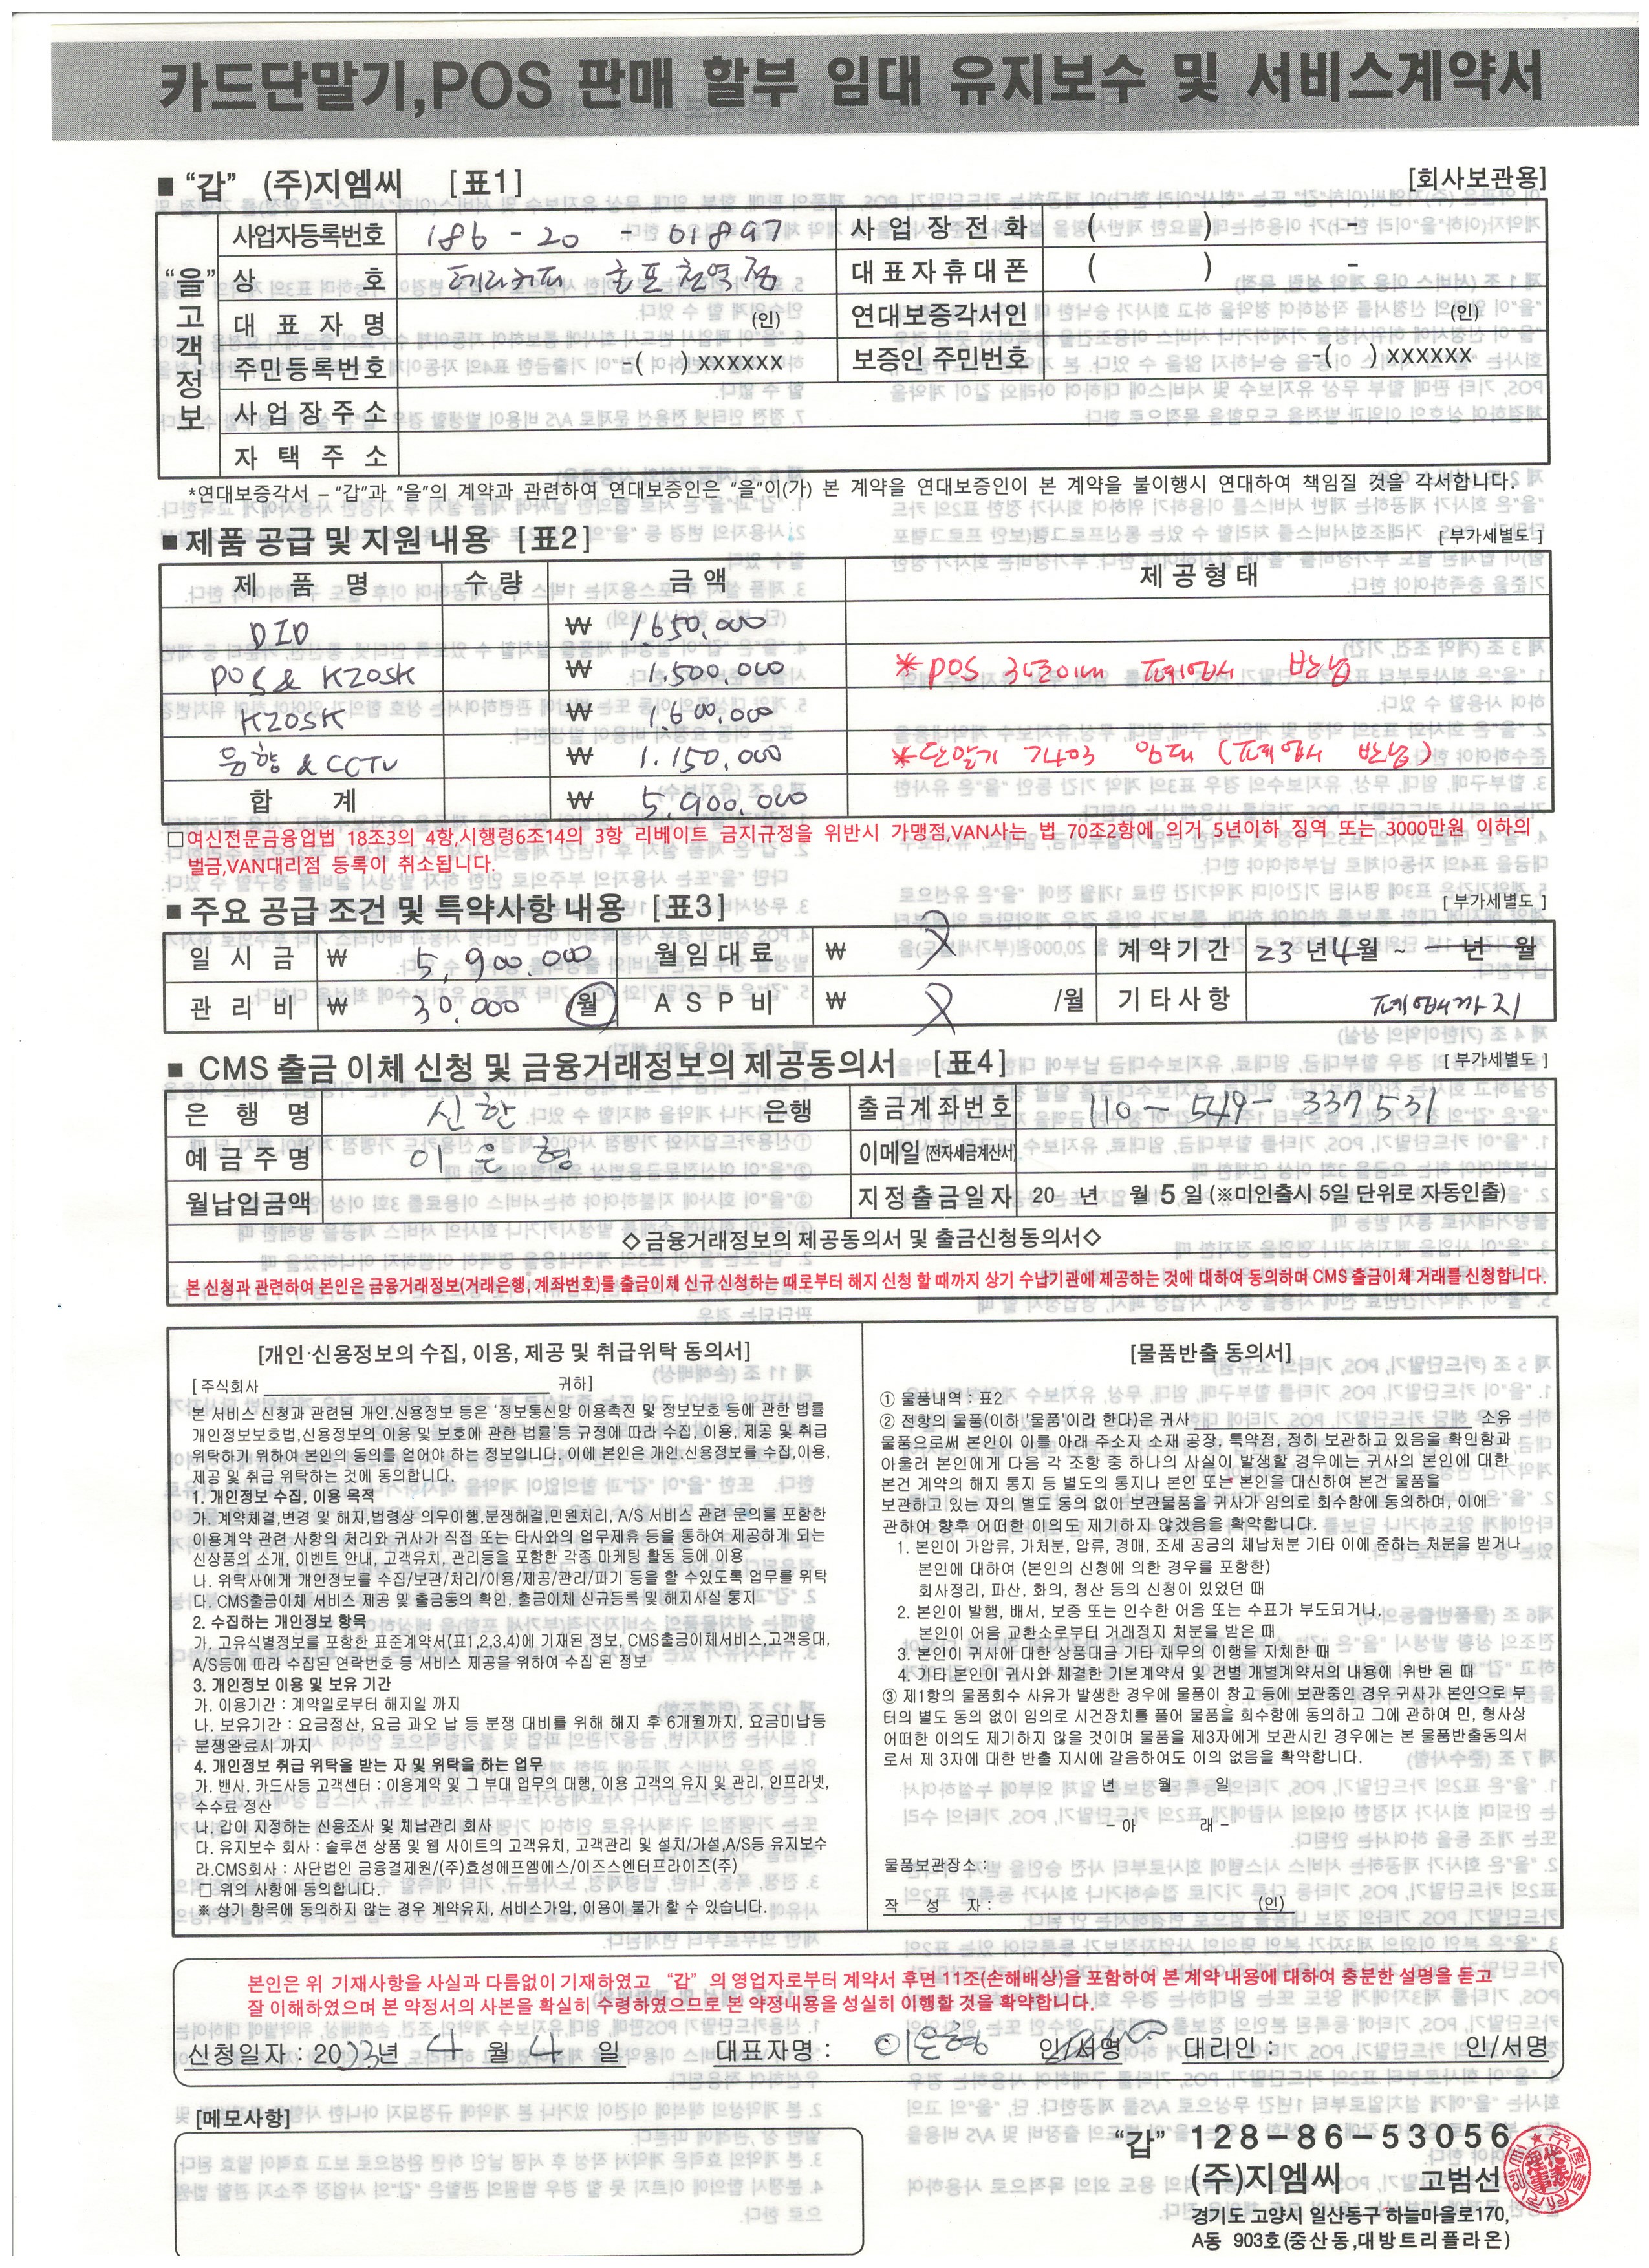 카드단말기,POS 판매 할부 임대 유지보수 및 서비스계약서
■ "갑" (주)지엠씨 [표1] [회사보관용]
"을" 고객정보
사업자등록번호 186 - 20 - 01897 사업장전화 ( ) -
상호 테라커피 운포천역점 대표자휴대폰 ( ) -
대표자명 (인) 연대보증각서인 (인)
주민등록번호 -( )xxxxxx 보증인 주민번호 -( )xxxxxx
사업장주소
자택주소
*연대보증각서 – "갑"과 "을"의 계약과 관련하여 연대보증인은 "을"이(가) 본 계약을 연대보증인이 본 계약을 불이행시 연대하여 책임질 것을 각서합니다.
■ 제품 공급 및 지원 내용 [표2] [부가세별도]
제품명 수량 금액 제공형태
DID ₩ 1.650.000
POS & KIOSK ₩ 1.500.000 *POS 3년이내 폐업시 반납
KIOSK ₩ 1.600.000
음향 & CCTV ₩ 1.150.000 *단말기 임대 (폐업시 반납)
합계 ₩ 5.900.000
□여신전문금융업법 18조3의 4항,시행령6조14의 3항 리베이트 금지규정을 위반시 가맹점,VAN사는 법 70조2항에 의거 5년이하 징역 또는 3000만원 이하의
벌금,VAN대리점 등록이 취소됩니다.
■ 주요 공급 조건 및 특약사항 내용 [표3] [부가세별도]
일시금 ₩ 5,900.000 월임대료 ₩ X 계약기간 23년4월 ~ 년 월
관리비 ₩ 30.000 월 ASP비 ₩ X /월 기타사항 폐업까지
■ CMS 출금 이체 신청 및 금융거래정보의 제공동의서 [표4] [부가세별도]
은행명 신한 은행 출금계좌번호 110 - 549 - 337531
예금주명 이은형 이메일(전자세금계산서)
월납입금액 지정출금일자 20 년 월 5일 (※미인출시 5일 단위로 자동인출)
◇ 금융거래정보의 제공동의서 및 출금신청동의서◇
본 신청과 관련하여 본인은 금융거래정보(거래은행, 계좌번호)를 출금이체 신규 신청하는 때로부터 해지 신청 할 때까지 상기 수납기관에 제공하는 것에 대하여 동의하며 CMS 출금이체 거래를 신청합니다.
[개인·신용정보의 수집, 이용, 제공 및 취급위탁 동의서]
[주식회사 귀하]
본 서비스 신청과 관련된 개인.신용정보 등은 '정보통신망 이용촉진 및 정보보호 등에 관한 법률
개인정보보호법,신용정보의 이용 및 보호에 관한 법률'등 규정에 따라 수집, 이용, 제공 및 취급
위탁하기 위하여 본인의 동의를 얻어야 하는 정보입니다. 이에 본인은 개인.신용정보를 수집,이용,
제공 및 취급 위탁하는 것에 동의합니다.
1. 개인정보 수집, 이용 목적
가. 계약체결,변경 및 해지,법령상 의무이행,분쟁해결,민원처리, A/S 서비스 관련 문의를 포함한
이용계약 관련 사항의 처리와 귀사가 직접 또는 타사와의 업무제휴 등을 통하여 제공하게 되는
신상품의 소개, 이벤트 안내, 고객유치, 관리등을 포함한 각종 마케팅 활동 등에 이용
나. 위탁사에게 개인정보를 수집/보관/처리/이용/제공/관리/파기 등을 할 수있도록 업무를 위탁
다. CMS출금이체 서비스 제공 및 출금동의 확인, 출금이체 신규등록 및 해지사실 통지
2. 수집하는 개인정보 항목
가. 고유식별정보를 포함한 표준계약서(표1,2,3,4)에 기재된 정보, CMS출금이체서비스,고객응대,
A/S등에 따라 수집된 연락번호 등 서비스 제공을 위하여 수집 된 정보
3. 개인정보 이용 및 보유 기간
가. 이용기간 : 계약일로부터 해지일 까지
나. 보유기간 : 요금정산, 요금 과오 납 등 분쟁 대비를 위해 해지 후 6개월까지, 요금미납등
분쟁완료시 까지
4. 개인정보 취급 위탁을 받는 자 및 위탁을 하는 업무
가. 밴사, 카드사등 고객센터 : 이용계약 및 그 부대 업무의 대행, 이용 고객의 유지 및 관리, 인프라넷,
수수료 정산
나. 갑이 지정하는 신용조사 및 체납관리 회사
다. 유지보수 회사 : 솔루션 상품 및 웹 사이트의 고객유치, 고객관리 및 설치/가설,A/S등 유지보수
라.CMS회사 : 사단법인 금융결제원/(주)효성에프엠에스/이즈스엔터프라이즈(주)
□ 위의 사항에 동의합니다.
※ 상기 항목에 동의하지 않는 경우 계약유지, 서비스가입, 이용이 불가 할 수 있습니다.
[물품반출 동의서]
① 물품내역 : 표2
② 전항의 물품(이하 '물품'이라 한다)은 귀사 소유
물품으로써 본인이 이를 아래 주소지 소재 공장, 특약점, 정히 보관하고 있음을 확인함과
아울러 본인에게 다음 각 조항 중 하나의 사실이 발생할 경우에는 귀사의 본인에 대한
본건 계약의 해지 통지 등 별도의 통지나 본인 또는 본인을 대신하여 본건 물품을
보관하고 있는 자의 별도 동의 없이 보관물품을 귀사가 임의로 회수함에 동의하며, 이에
관하여 향후 어떠한 이의도 제기하지 않겠음을 확약합니다.
1. 본인이 가압류, 가처분, 압류, 경매, 조세 공금의 체납처분 기타 이에 준하는 처분을 받거나
본인에 대하여 (본인의 신청에 의한 경우를 포함한)
회사정리, 파산, 화의, 청산 등의 신청이 있었던 때
2. 본인이 발행, 배서, 보증 또는 인수한 어음 또는 수표가 부도되거나,
본인이 어음 교환소로부터 거래정지 처분을 받은 때
3. 본인이 귀사에 대한 상품대금 기타 채무의 이행을 지체한 때
4. 기타 본인이 귀사와 체결한 기본계약서 및 건별 개별계약서의 내용에 위반 된 때
③ 제1항의 물품회수 사유가 발생한 경우에 물품이 창고 등에 보관중인 경우 귀사가 본인으로 부
터의 별도 동의 없이 임의로 시건장치를 풀어 물품을 회수함에 동의하고 그에 관하여 민, 형사상
어떠한 이의도 제기하지 않을 것이며 물품을 제3자에게 보관시킨 경우에는 본 물품반출동의서
로서 제 3자에 대한 반출 지시에 갈음하여도 이의 없음을 확약합니다.
년 월 일
- 아 래 -
물품보관장소 :
작 성 자 : (인)
본인은 위 기재사항을 사실과 다름없이 기재하였고 "갑"의 영업자로부터 계약서 후면 11조(손해배상)을 포함하여 본 계약 내용에 대하여 충분한 설명을 듣고
잘 이해하였으며 본 약정서의 사본을 확실히 수령하였으므로 본 약정내용을 성실히 이행할 것을 확약합니다.
신청일자 : 2023년 4월 4일 대표자명 : 이은형 인/서명 대리인 : 인/서명
[메모사항]
"갑" 128-86-53056
(주)지엠씨 고범선
경기도 고양시 일산동구 하늘마을로170,
A동 903호(중산동,대방트리플라온)